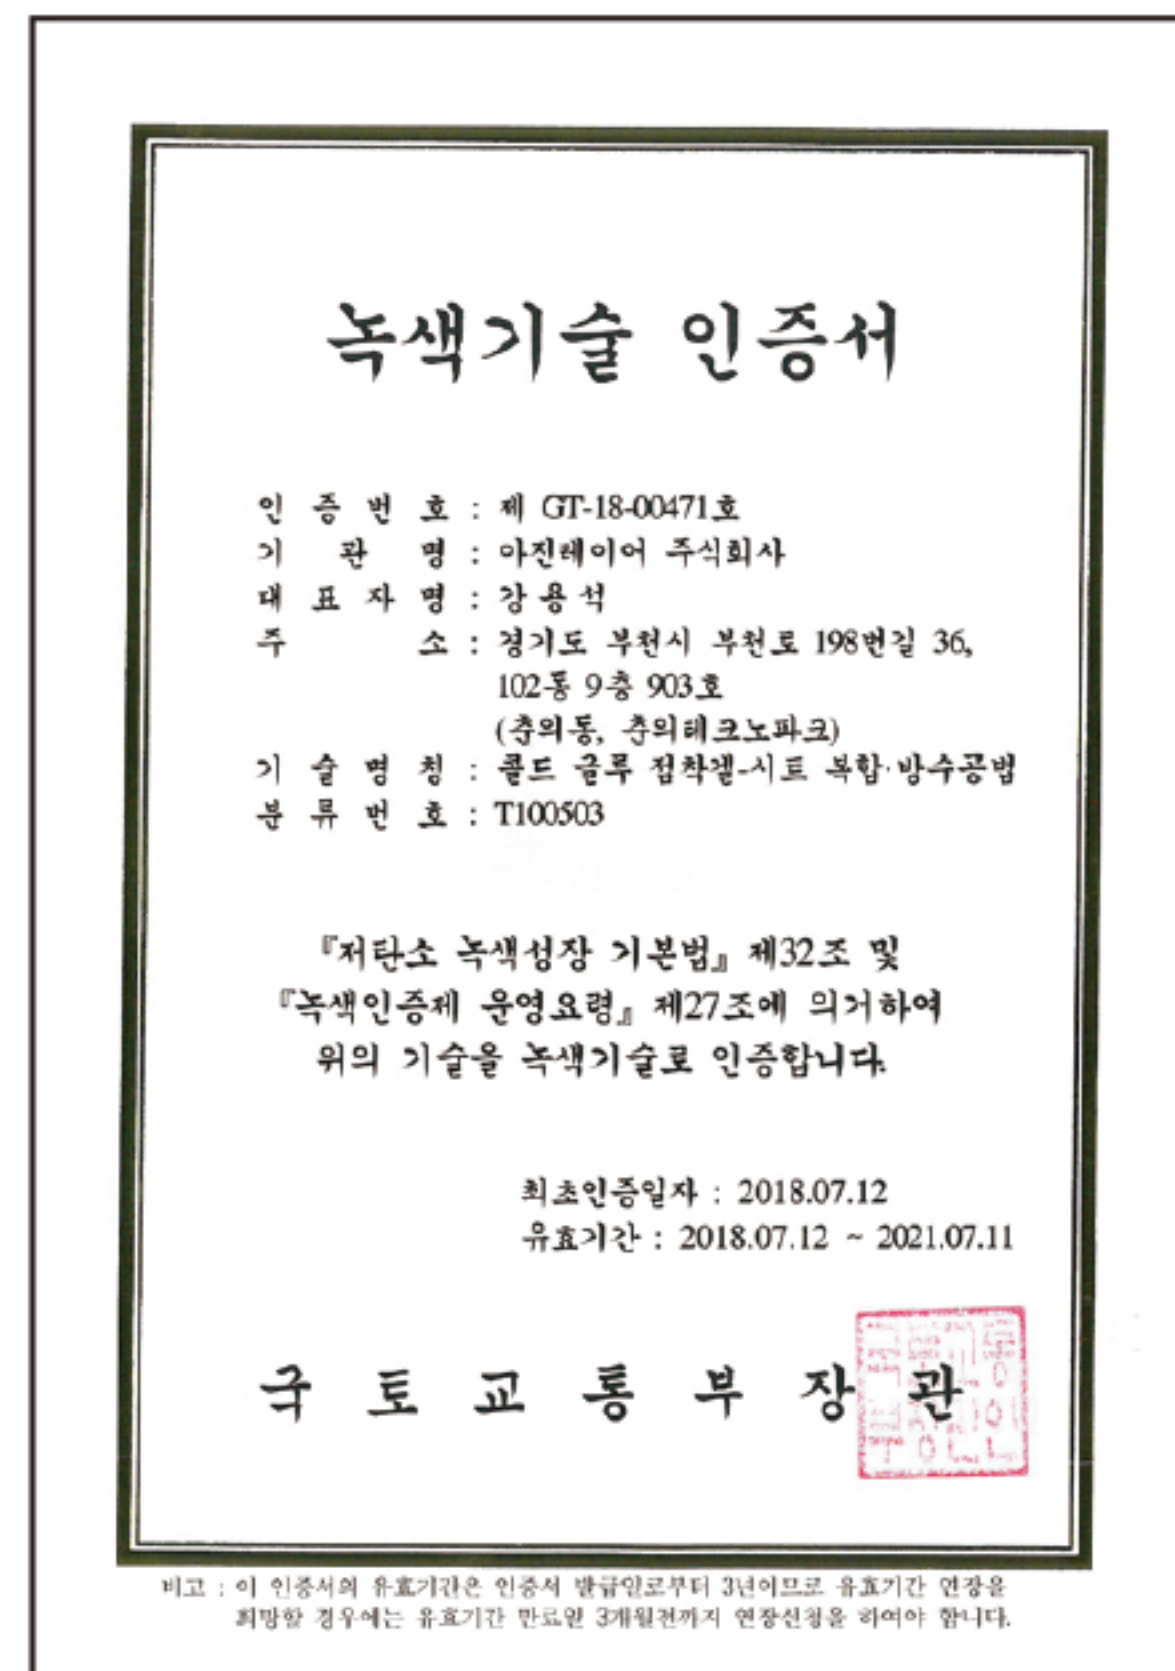 녹색기술 인증서
인 증 번 호 : 제 GT-18-00471호
기 관 명 : 아진레이어 주식회사
대 표 자 명 : 강용석
주 소 : 경기도 부천시 부천로 198번길 36,
102동 9층 903호
(춘의동, 춘의테크노파크)
기 술 명 칭 : 콜드 글루 점착겔-시트 복합·방수공법
분 류 번 호 : T100503
『저탄소 녹색성장 기본법』 제32조 및
『녹색인증제 운영요령』 제27조에 의거하여
위의 기술을 녹색기술로 인증합니다.
최초인증일자 : 2018.07.12
유효기간 : 2018.07.12 ~ 2021.07.11
국 토 교 통 부 장 관
비고 : 이 인증서의 유효기간은 인증서 발급일로부터 3년이므로 유효기간 연장을
희망할 경우에는 유효기간 만료일 3개월전까지 연장신청을 하여야 합니다.